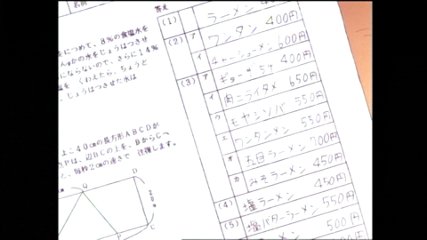 名前
答え
につめて、8%の食塩水を
gの水をじょうはつさせ
にならないので、さらに14%
塩を くわえたら、ちょうど
、じょうはつさせた水は
よこ40cmの長方形ABCDが
Pは、辺BCの上を、BからCへ
、毎秒2cmの速さで 往復します。
Q
D
P
C
(1) ラーメン
(2) ア ワンタン 400円
イ チャーシューメン 600円
(3) ア ギョーザ 400円
イ 肉ニライタメ 650円
ウ モヤシソバ 550円
エ ワンタンメン 550円
オ 五目ラーメン 700円
カ みそラーメン 450円
(4) 塩ラーメン 450円
(5) 塩バターラーメン 550円
500円